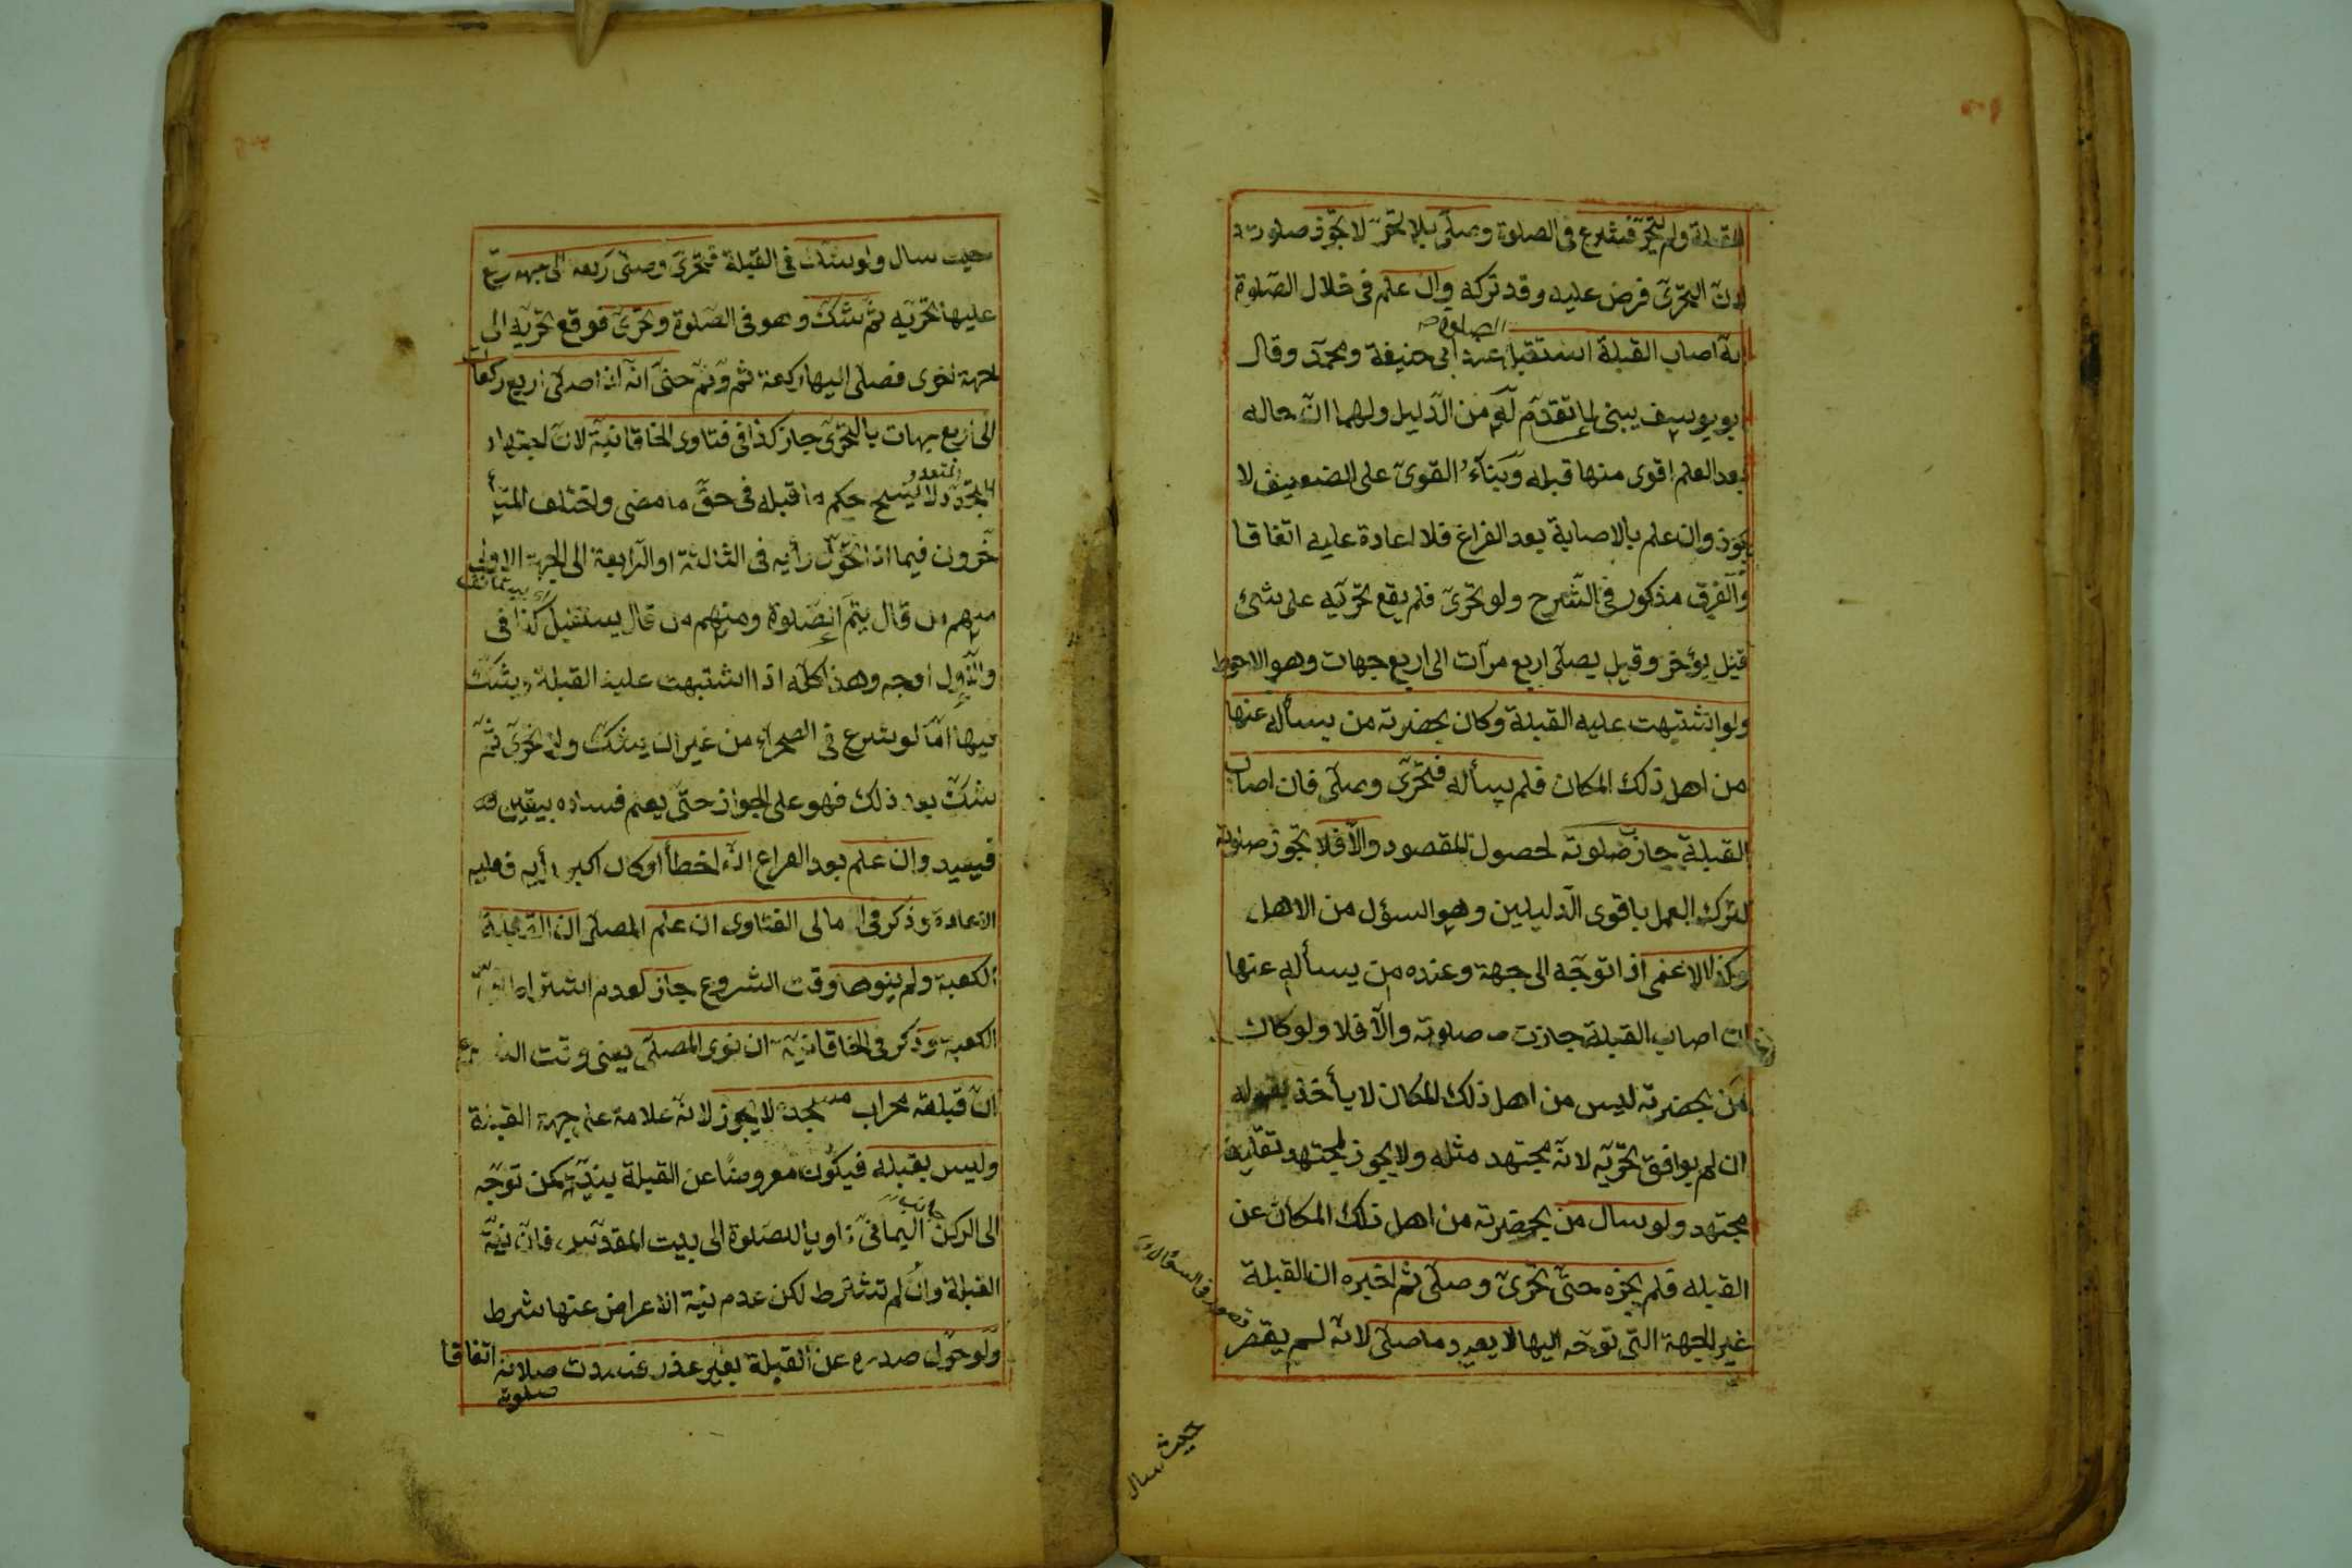 القبلة ولم يتحرّ فشرع فى الصلوة وصلّى بلا تحرّ لا تجوز صلوته
لانّ التحرّى فرض عليه وقد تركه وان علم فى خلال الصّلوة
انّه اصاب القبلة استقبل الصلوة عند ابى حنيفة ومحمّد وقال
ابو يوسف يبنى لما تقدّم له من الدّليل ولهما انّ حاله
بعد العلم اقوى منها قبله وبناء القوىّ على الضعيف لا
يجوز وان علم بالاصابة بعد الفراغ فلا اعادة عليه اتفاقا
والفرق مذكور فى الشّرح ولو تحرّى فلم يقع تحرّيه على شئ
قيل يؤخر وقيل يصلّى اربع مرّات الى اربع جهات وهو الاحوط
ولو اشتبهت عليه القبلة وكان بحضرته من يسأله عنها
من اهل ذلك المكان فلم يسأله فتحرّى وصلّى فان اصاب
القبلة جاز صلوته لحصول المقصود والّا فلا تجوز صلوته
لتركه العمل باقوى الدّليلين وهو السؤل من الاهل
وكذا الاعمى اذا توجّه الى جهة وعنده من يسأله عنها
ان اصاب القبلة جازت صلوته والّا فلا ولو كان
من بحضرته ليس من اهل ذلك المكان لا يأخذ بقوله
ان لم يوافق تحرّيه لانّه مجتهد مثله ولا يجوز لمجتهد تقليد
مجتهد ولو سال من بحضرته من اهل ذلك المكان عن
القبله فلم يخبره حتّى تحرّى وصلّى ثم اخبره ان القبلة
غير الجهة التى توجّه اليها لا يعيد ما صلّى لانّه لم يقصر
حيث سال
حيث سال ولو شك فى القبلة فتحرّى وصلّى ركعة الى جهة وقع
عليها تحرّيه ثمّ شكّ وهو فى الصّلوة وتحرّى فوقع تحرّيه الى
جهة اخرى فصلى اليها ركعة ثم وثم حتّى انّه اذا صلّى اربع ركعات
الى اربع جهات بالتحرّى جاز كذا فى فتاوى الخاقانيّة لانّ اجتهاد
المتجدّد لا ينسخ حكم ما قبله فى حقّ ما مضى واختلف المتا
خّرون فيما اذا تحوّل رأيه فى الثالثة او الرّابعة الى الجهة الاولى
منهم من قال يتمّ الصّلوة ومنهم من قال يستقبل كذا فى
والاوّل اوجه وهذا كلّه اذا اشتبهت عليه القبلة وشكّ
فيها امّا لو شرع فى الصحراء من غير ان يشكّ ولا تحرّى ثمّ
شكّ بعد ذلك فهو على الجواز حتّى يعلم فساده بيقين
فيعيد وان علم بعد الفراغ انّه اخطأ او كان اكبر رأيه فعليه
الاعادة وذكر فى امالى الفتاوى ان علم المصلّى ان القبلة
الكعبة ولم ينوها وقت الشروع جاز لعدم اشتراط
الكعبة وذكر فى الخاقانيّة ان نوى المصلّى يعنى وقت الشروع
انّ قبلته محراب مسجده لا يجوز لانّه علامة على جهة القبلة
وليس بقبله فيكون معروضًا عن القبلة بنيّة كمن توجّه
الى الركن اليمانىّ ناويا للصّلوة الى بيت المقدّس فانّ نيّة
القبلة وان لم تشترط لكن عدم نيّة الاعراض عنها شرط
ولو حوّل صدره عن القبلة بغير عذر فسدت صلاته اتفاقا
صلوته